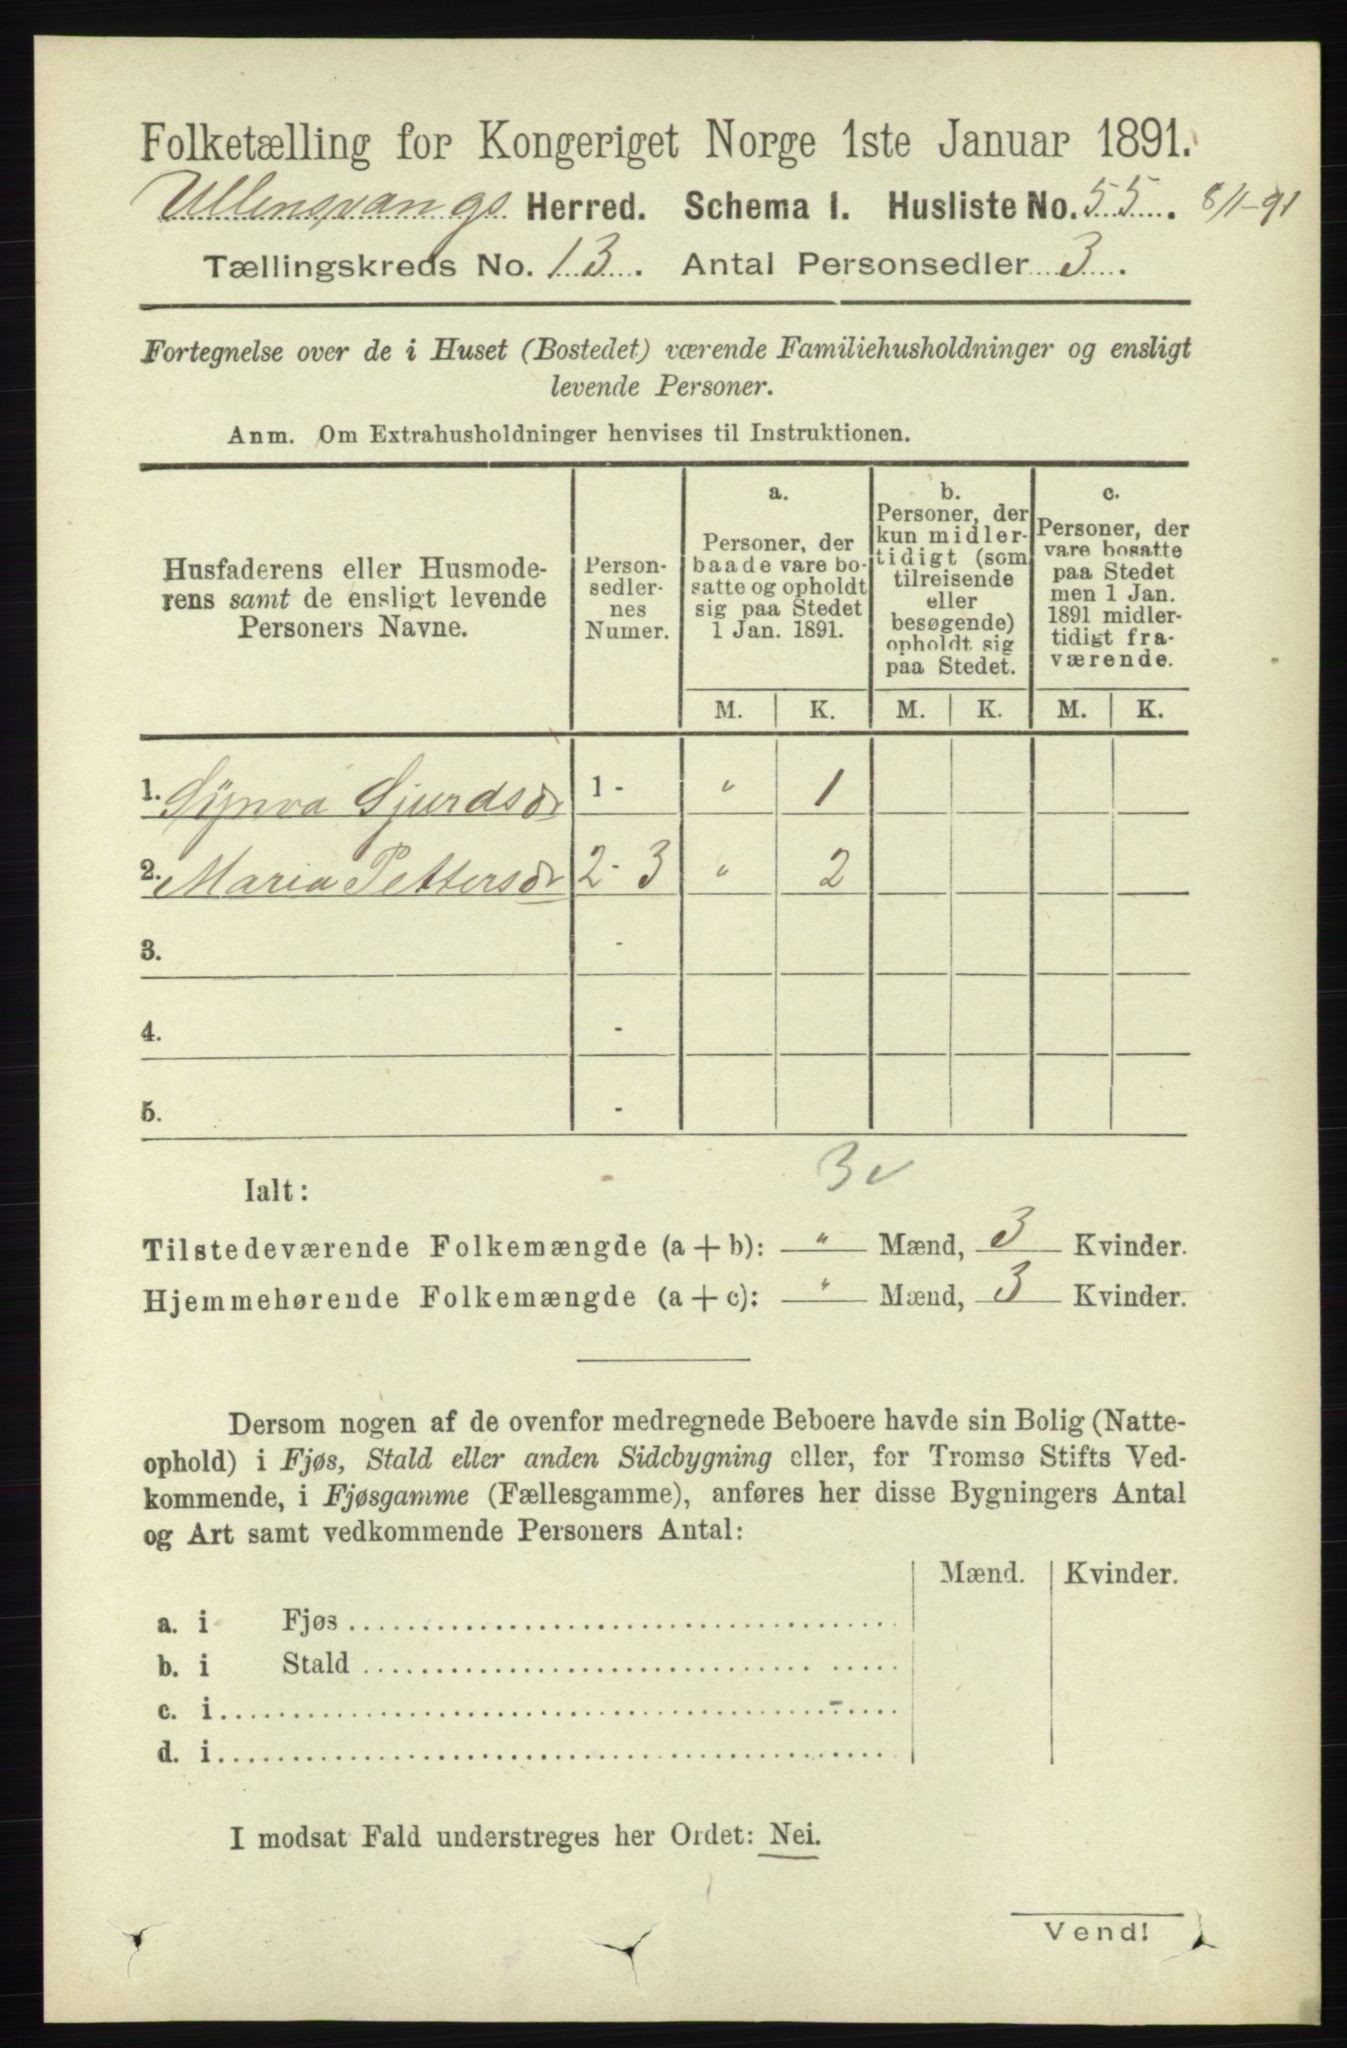 Folketælling for Kongeriget Norge 1ste Januar 1891.
Ullensvangs Herred. Schema I. Husliste No. 55. 8/1-91
Tællingskreds No. 13. Antal Personsedler 3.
Fortegnelse over de i Huset (Bostedet) værende Familiehusholdninger og ensligt
levende Personer.
Anm. Om Extrahusholdninger henvises til Instruktionen.
Husfaderens eller Husmode-
rens samt de ensligt levende
Personers Navne.
Person-
sedler-
nes
Numer.
a.
Personer, der
baade vare bo-
satte og opholdt
sig paa Stedet
1 Jan. 1891.
b.
Personer, der
kun midler-
tidigt (som
tilreisende
eller
besøgende)
opholdt sig
paa Stedet.
c.
Personer, der
vare bosatte
paa Stedet
men 1 Jan.
1891 midler-
tidigt fra-
værende.
M. K. M. K. M. K.
1. Synva Sjurdsdr 1 - " 1
2. Maria Pettersdr 2 - 3 " 2
3. -
4. -
5. -
3 ✓
Ialt:
Tilstedeværende Folkemængde (a + b): " Mænd, 3 Kvinder.
Hjemmehørende Folkemængde (a + c): " Mænd, 3 Kvinder.
Dersom nogen af de ovenfor medregnede Beboere havde sin Bolig (Natte-
ophold) i Fjøs, Stald eller anden Sidebygning eller, for Tromsø Stifts Ved-
kommende, i Fjøsgamme (Fællesgamme), anføres her disse Bygningers Antal
og Art samt vedkommende Personers Antal:
Mænd. Kvinder.
a. i Fjøs
b. i Stald
c. i
d. i
I modsat Fald understreges her Ordet: Nei.
Vend!